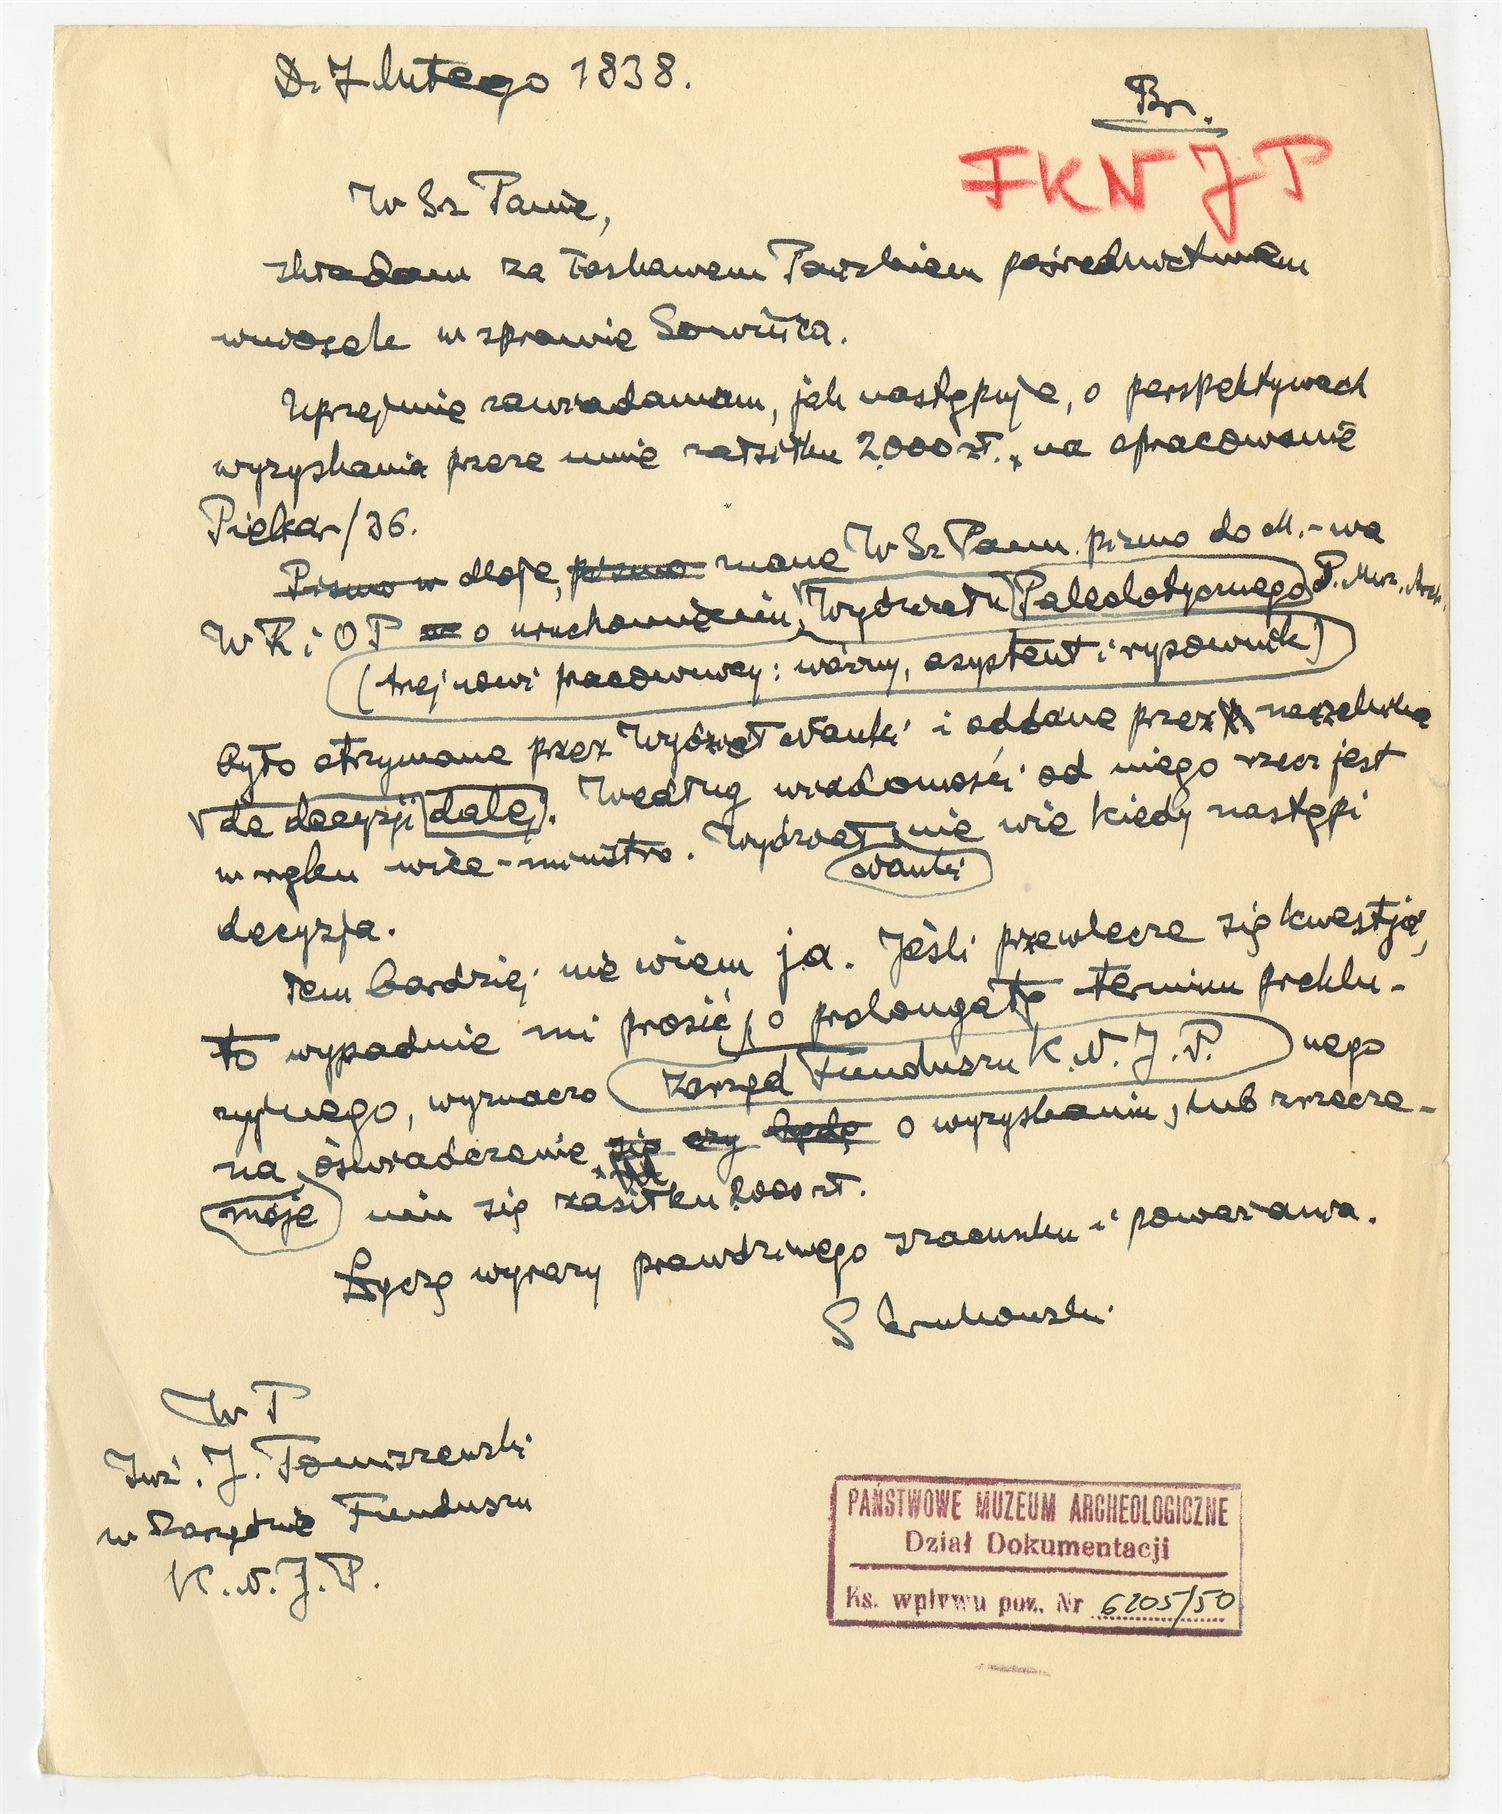 D. 7 lutego 1838.
Br.
FKNJP
W Sz Panie,
składam za łaskawem Pańskiem pośrednictwem
wniosek w sprawie Sawickiego.
Uprzejmie zawiadamiam, jak następuje, o perspektywach
wyzyskania przeze mnie zasiłku 2.000 zł. na opracowanie
Piekar/36.
Pismo w dłoje, pismo znane W Sz Panu pismo do M.-wa
W R i O P o uruchomieniu Wydziału Paleolitycznego P. Muz. Arch.
(trzej nowi pracownicy: woźny, asystent i rysownik)
było otrzymane przez Wydział Nauki i oddane przez naczelnika
do decyzji dalej. Według wiadomości od niego rzecz jest
w ręku wice-ministra. Wydział nie wie kiedy nastąpi
Nauki
decyzja.
Tem bardziej nie wiem ja. Jeśli przewlecze się kwestja,
to wypadnie mi prosić o prolongatę terminu preklu-
zyjnego, wyznaczo
Zarząd Funduszu K.N.J.P.
nego
na oświadczenie się czy będę o wyzyskaniu, lub zrzecze-
moje
niu się zasiłku 2000 zł.
Łączę wyrazy prawdziwego szacunku i poważania.
S Krukowski
W P
Inż. J. Tomaszewski
w Zarządzie Funduszu
K.N.J.P.
PAŃSTWOWE MUZEUM ARCHEOLOGICZNE
Dział Dokumentacji
Ks. wpływu poz. Nr 6205/50